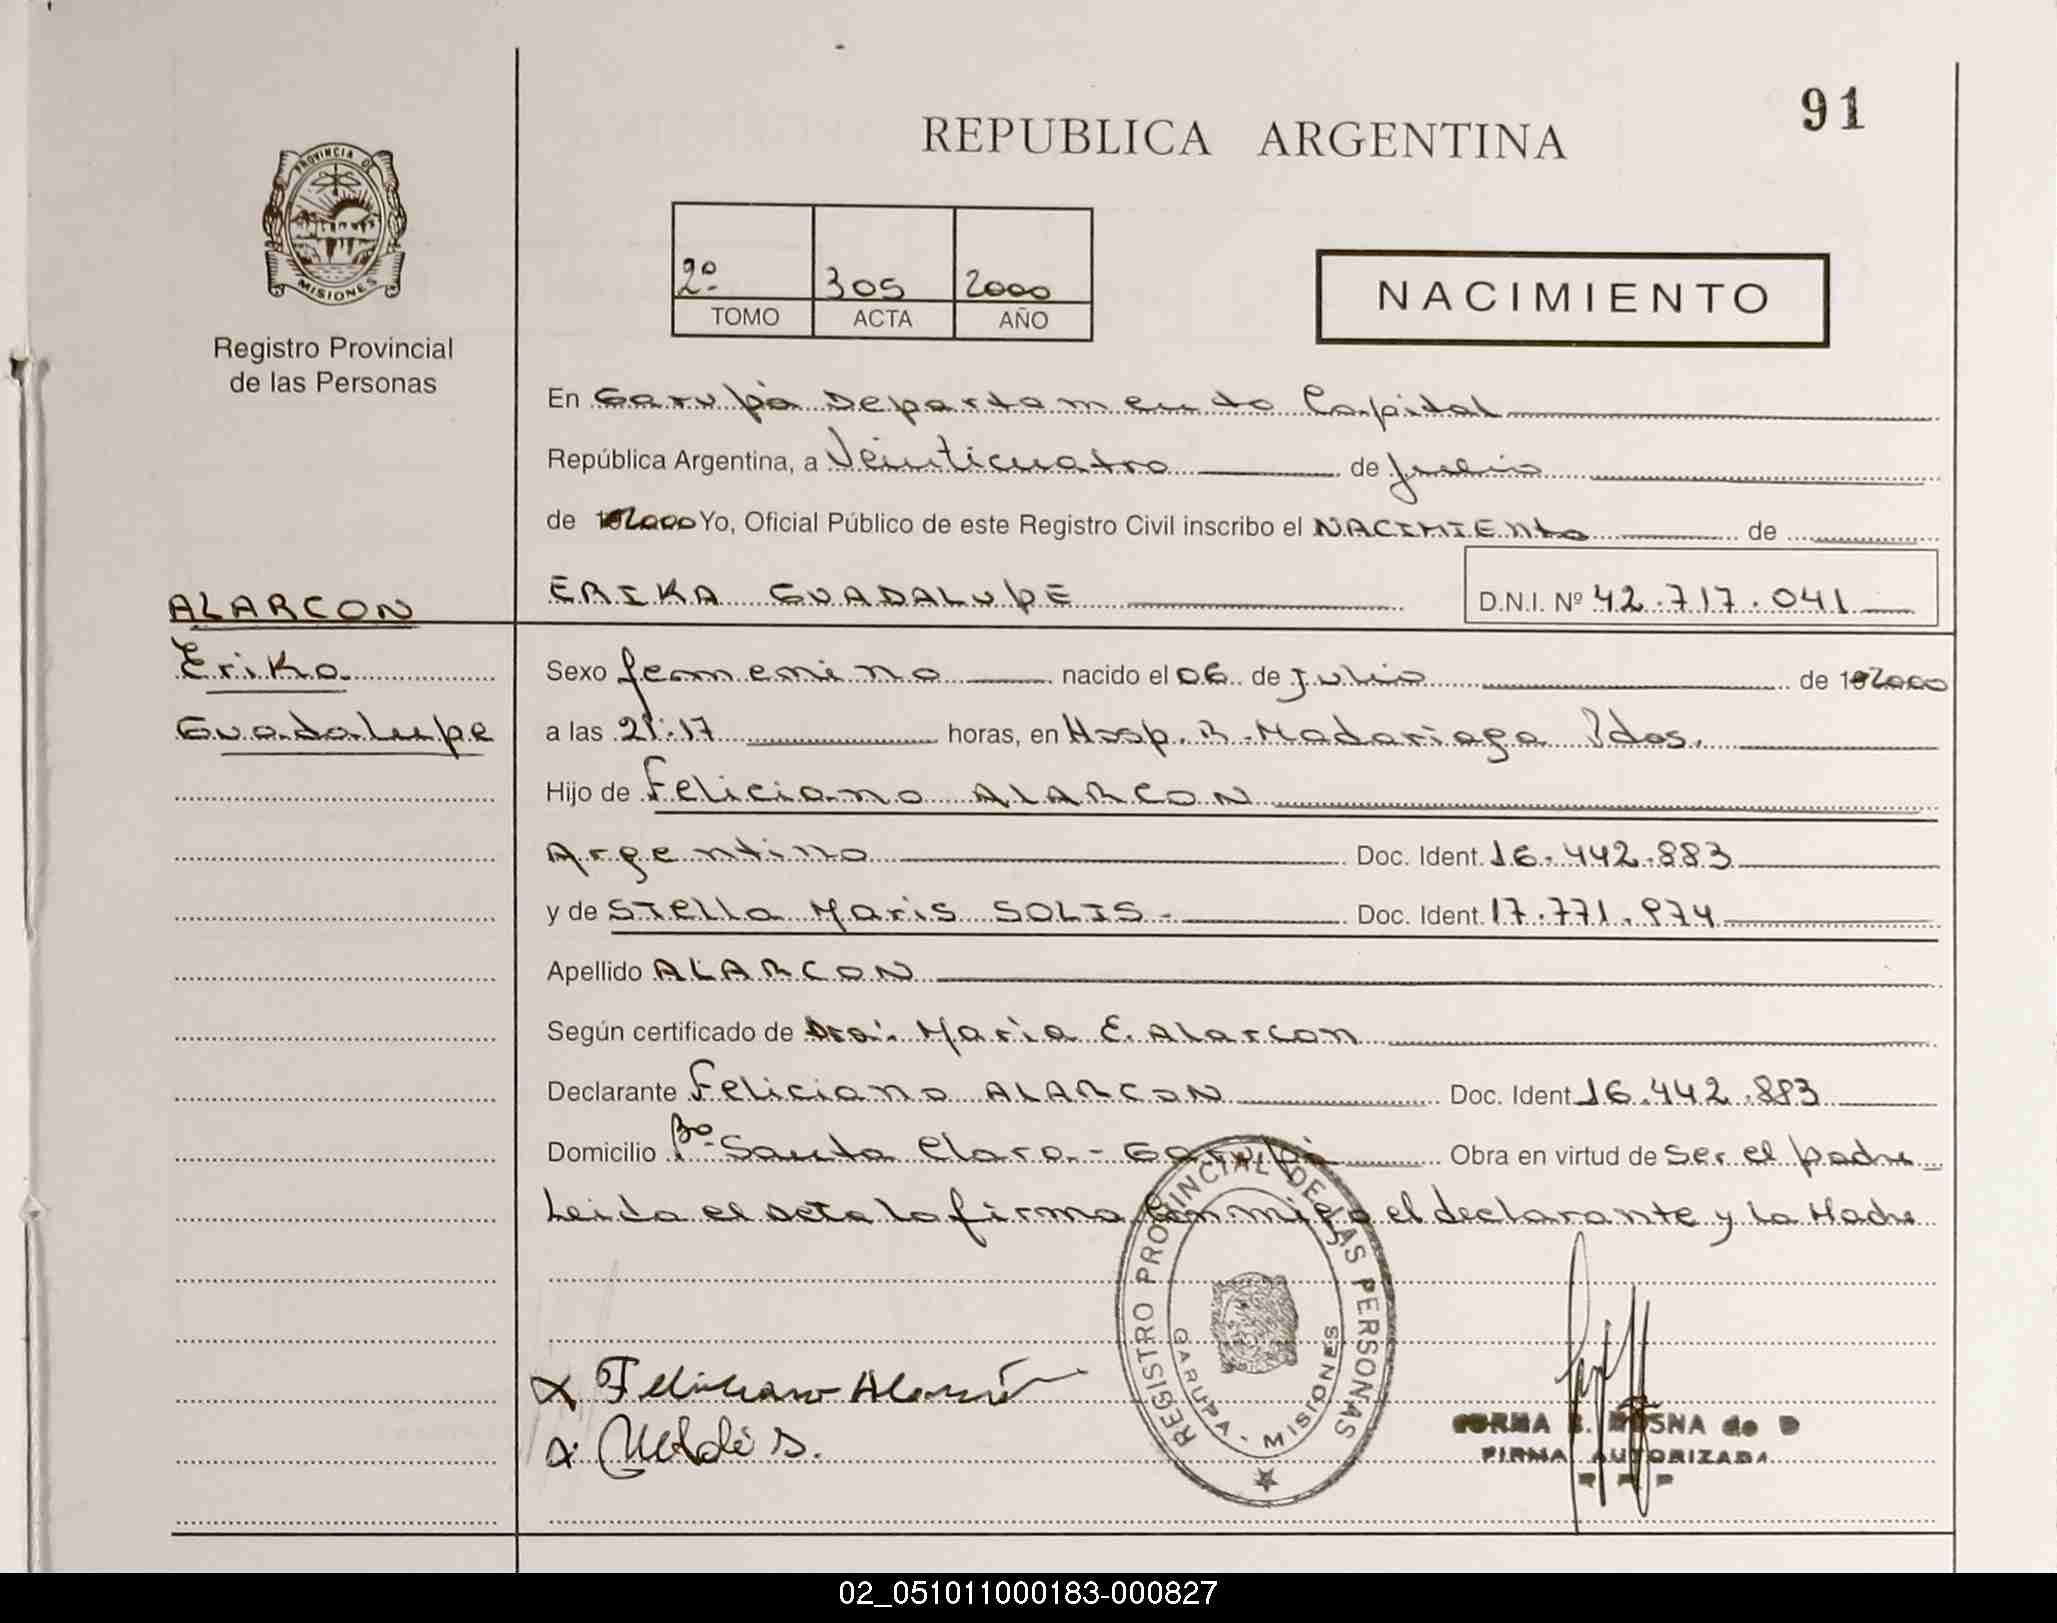 91
REPUBLICA ARGENTINA
PROVINCIA DE
MISIONES
Registro Provincial
de las Personas
2º 305 2000
TOMO ACTA AÑO
NACIMIENTO
En Garupá Departamento Capital
República Argentina, a Veinticuatro de Julio
de 2000 Yo, Oficial Público de este Registro Civil inscribo el NACIMIENto de
ERIKA GUADALUPE D.N.I. Nº 42.717.041
ALARCON
Erika
Guadalupe
Sexo femenino nacido el 06 de Julio de 2000
a las 21:17 horas, en Hosp. R. Madariaga Pdas.
Hijo de Feliciano ALARCON
Argentino Doc. Ident. 16.442.883
y de Stella Maris SOLIS - Doc. Ident. 17.771.974
Apellido ALARCON
Según certificado de Dra: Maria E. Alarcon
Declarante Feliciano ALARCON Doc. Ident. 16.442.883
Domicilio Bº Santa Clara - Garupá Obra en virtud de ser el padre
Leida el acta la firma conmigo el declarante y la Madre
x Feliciano Alarcón
x
REGISTRO PROVINCIAL DE LAS PERSONAS
GARUPA - MISIONES
B. MOSNA de D
FIRMA AUTORIZADA
02_051011000183-000827